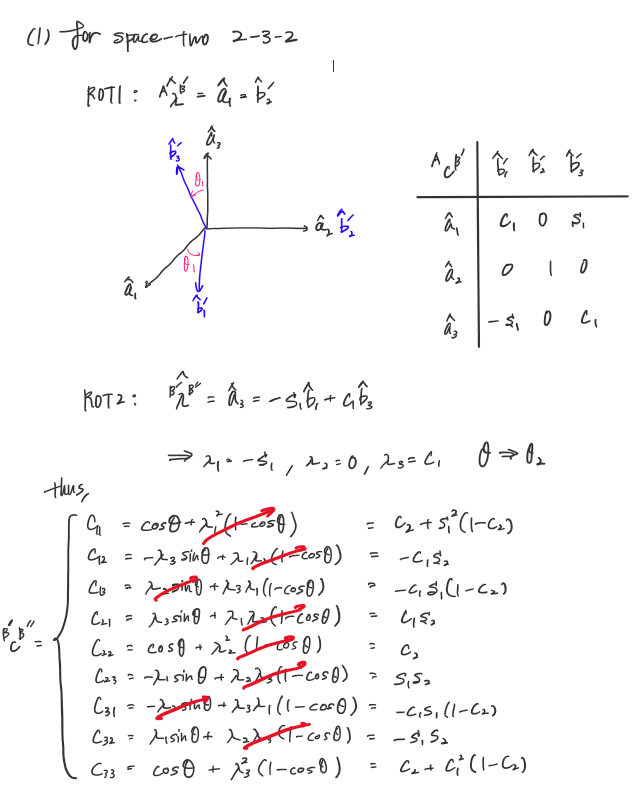 (1) for space-two 2-3-2
ROT1 : ᴬλ̂ᴮ′ = â₁ = b̂₂′
â₃
b̂₃′
θ₁
â₂ b̂₂′
θ₁
â₁
b̂₁′
ᴬCᴮ′ b̂₁′ b̂₂′ b̂₃′
â₁ C₁ 0 S₁
â₂ 0 1 0
â₃ -S₁ 0 C₁
ROT2 : ᴮ′λ̂ᴮ″ = â₃ = -S₁b̂₁′ + C₁b̂₃
⇒ λ₁ = -S₁ , λ₂ = 0 , λ₃ = C₁ θ ⇒ θ₂
thus,
ᴮ′Cᴮ″ =
C₁₁ = cosθ + λ₁²(1-cosθ) = C₂ + S₁²(1-C₂)
C₁₂ = -λ₃ sinθ + λ₁λ₂(1-cosθ) = -C₁S₂
C₁₃ = λ₂ sinθ + λ₃λ₁(1-cosθ) = -C₁S₁(1-C₂)
C₂₁ = λ₃ sinθ + λ₁λ₂(1-cosθ) = C₁S₂
C₂₂ = cosθ + λ₂²(1-cosθ) = C₂
C₂₃ = -λ₁ sinθ + λ₂λ₃(1-cosθ) = S₁S₂
C₃₁ = -λ₂ sinθ + λ₃λ₁(1-cosθ) = -C₁S₁(1-C₂)
C₃₂ = λ₁sinθ + λ₂λ₃(1-cosθ) = -S₁S₂
C₃₃ = cosθ + λ₃²(1-cosθ) = C₂ + C₁²(1-C₂)